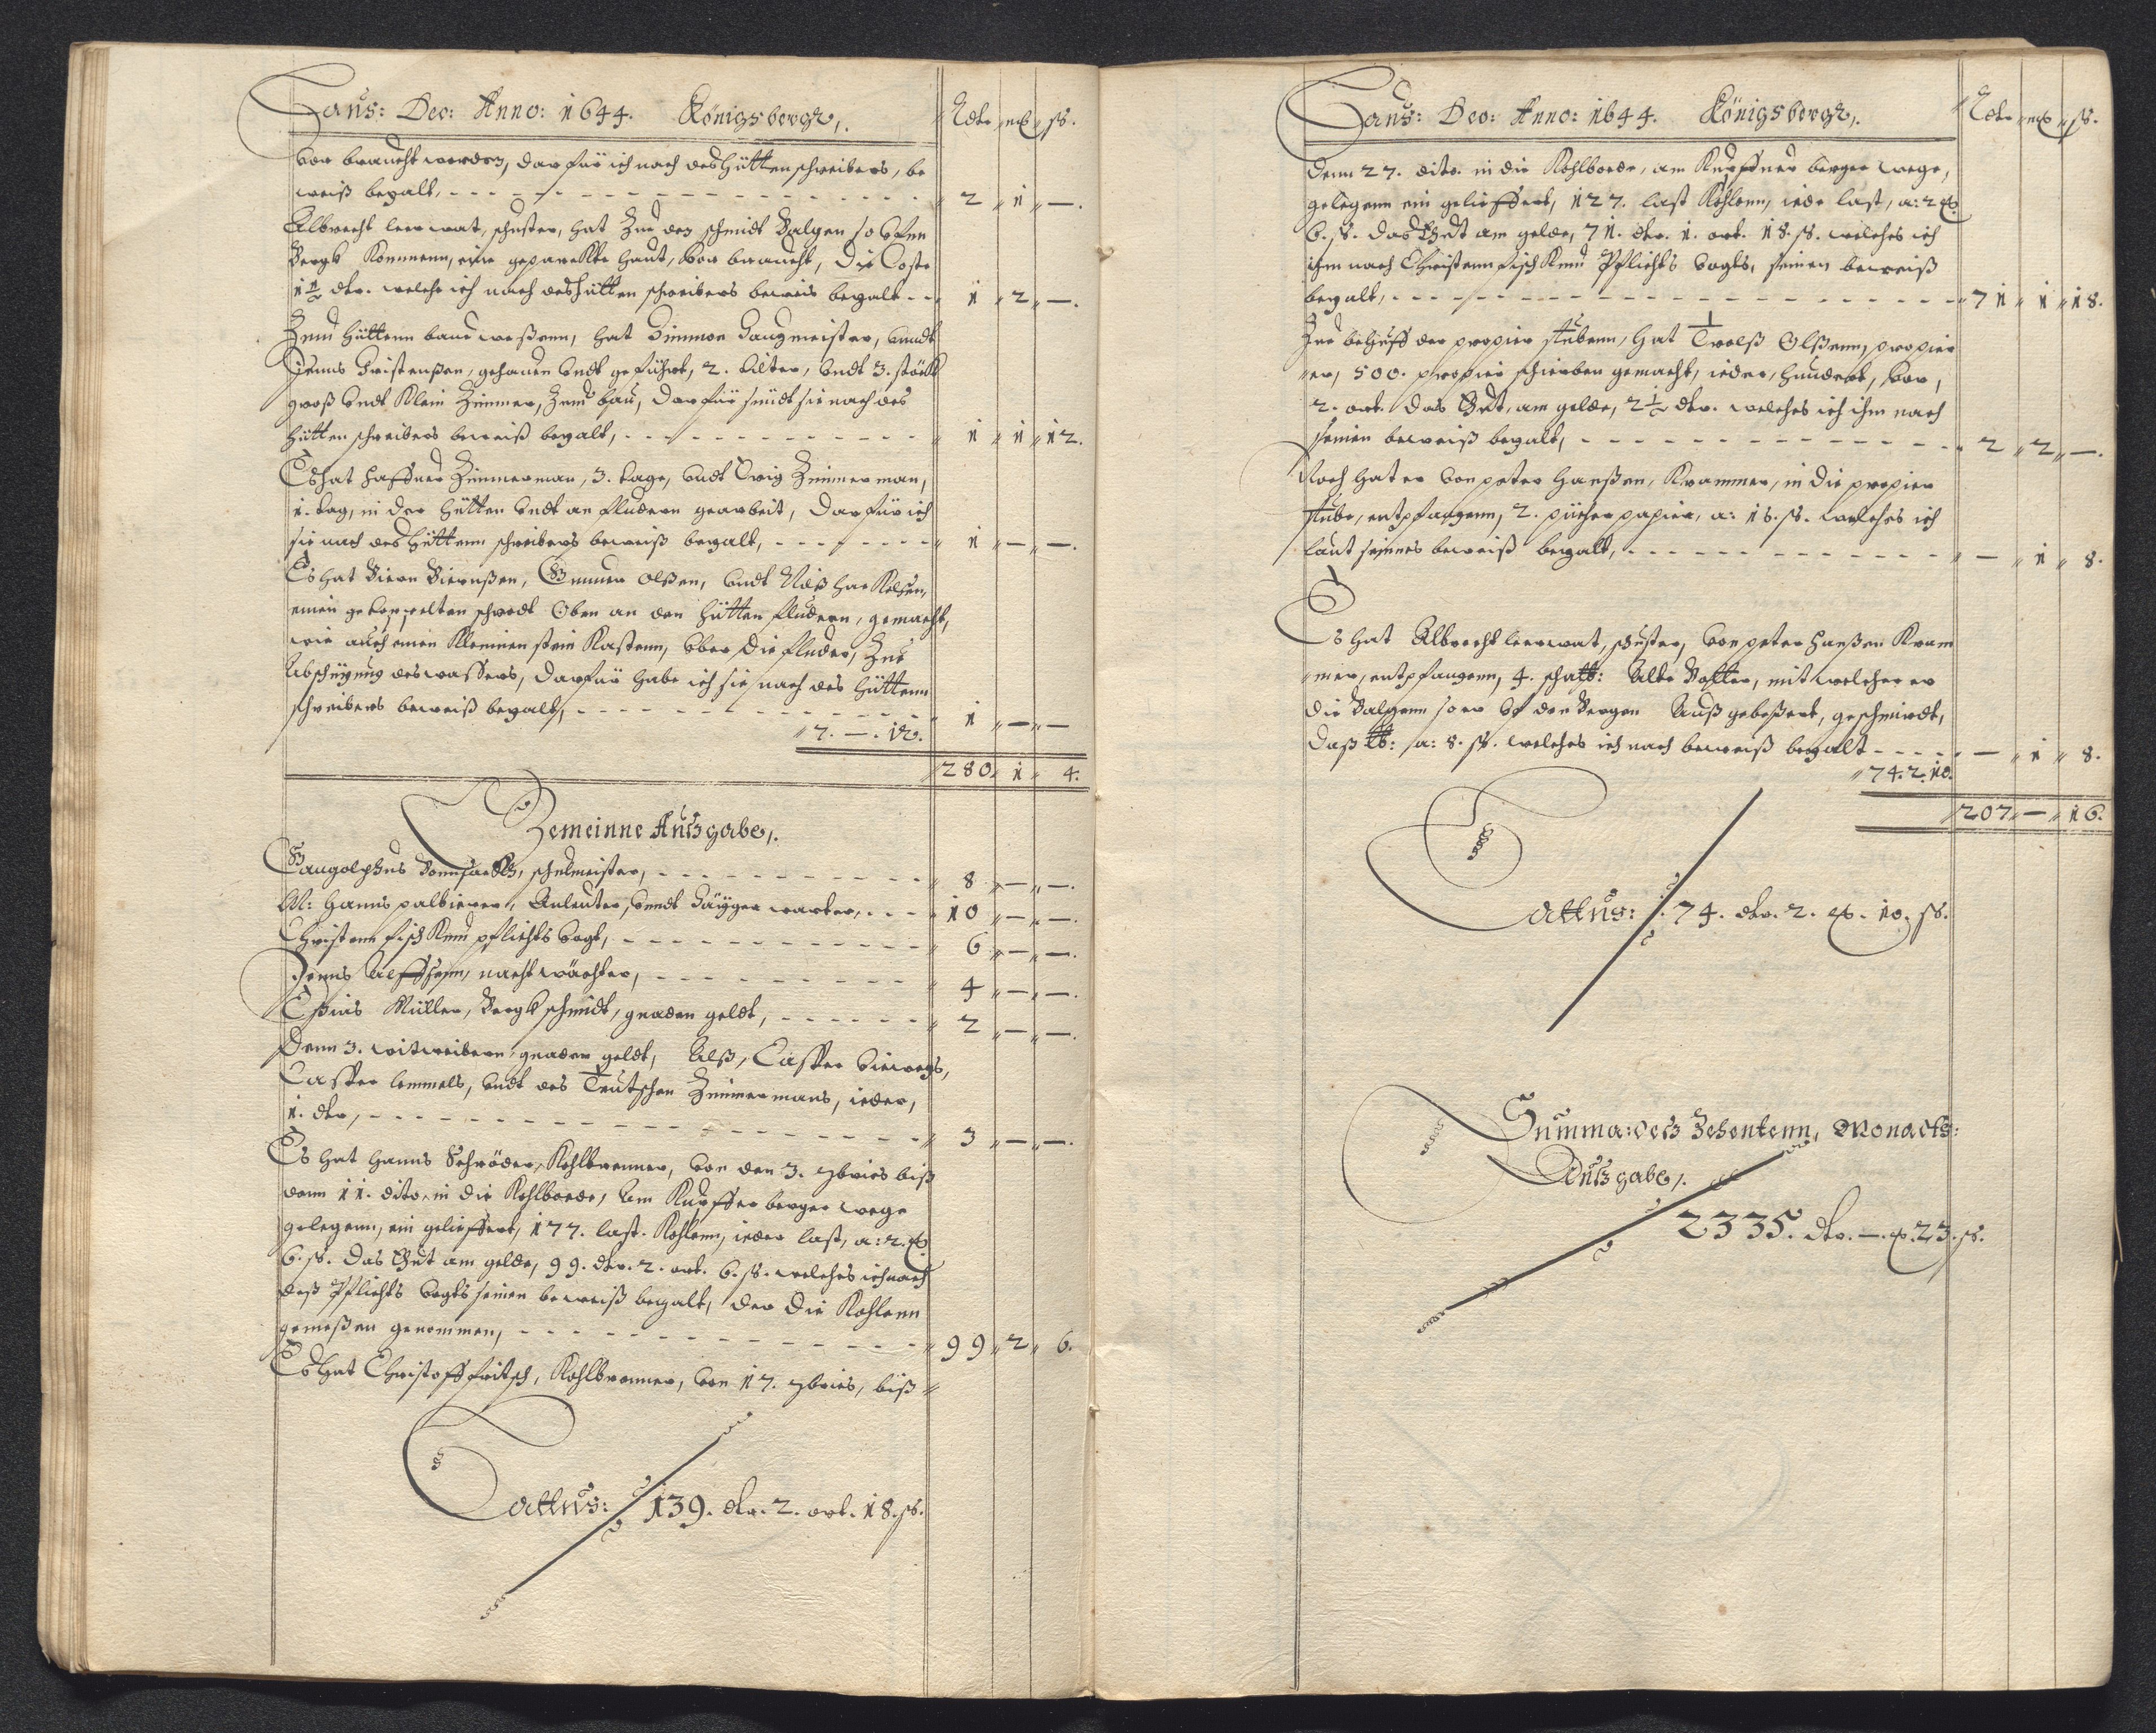 Laus: Deo: Anno: 1644. Königsbergk,. Rdtr ort ß.
Vor braucht worden, dar für ich nach des Hütten schreibers, be
weiß bezalt, - - - 2 " 1 " —.
Albrecht leerwat, schuster, hat Zue den schmidt Balgen so
Bergk Kommenn, eine Haut, Vor braucht, die Coste
1½ dtr. welche ich nach des hütten schreibers beweis bezalt - - 1 " 2 " —.
Zum hüttenn bauwesenn, hat Simmon Vnndt
Jenns gehauen Vndt geführt, 2. Vndt 3. stück
groß Vndt Klein Zimmer, Zum bau, dar für sindt sie nach des
hütten schreibers beweiß bezalt, - - - 1 " 1 " 12.
Es hat Haffner Zimmerman, 3. tage, Vndt Zimmerman,
1. tag, in der Hütten Vndt an fludern gearbeit, dar für ich
sie nach des Hüttenn schreibers beweiß bezalt, - - - 1 " — " —.
Es hat Biern Biernßen, Gunner Olßen, Vndt
einen schwedt Oben an den Hütten fludern, gemacht,
wie auch einen Kleinen stein Kastenn, Vber die fluder, Zue
des wassers, darfür habe ich sie nach des Hüttenn
schreibers beweiß bezalt, - - - 1 " — " —
" 7. —. 12.
" 280 " 1 " 4.
Gemeinne Außgabe,.
Gangolphus schulmeister, - - - 8 " — " —.
M: Hanns palbierer, Vnndt warter, - - - 10 " — " —.
Christenn fisch Knud pflichts Vogt, - - - 6 " — " —.
Jenns nacht wächter, - - - 4 " — " —.
Müller, Bergk schmidt, gnaden geldt, - - - 2 " — " —.
Denn 3. witweibern, gnaden geldt, Alß, Casper
Casper lemmels, Vndt des Teutschen Zimmermans, jeder,
1. dtr, - - - 3 " — " —.
Es hat Hanns Schröder, Kohlbrenner, Von den 3. 7bris biß
denn 11. dito, in die Kohlboede, Am Kupffer berger wege
gelegenn, ein gelieffert, 177. last. Kohlenn, jeder last, a: 2. ort
6. ß. das Thut am gelde, 99. dtr. 2. ort. 6. ß. welches ich nach
deß Pflichts Vogts seinen beweiß bezalt, der die Kohlenn
gemeßen genommen, - - - 99 " 2 " 6.
Es Hat Christoff fritsch, Kohlbrenner, Von 17. 7bris, biß
Lattus: 139. dtr. 2. ort. 18. ß.
Laus: Deo: Anno: 1644. Königsbergk,. Rdtr ort ß.
denn 27. dito. in die Kohlboede, am Kupffner berger wege,
gelegenn ein gelieffert, 127. last Kohlenn, jede last, a: 2 ort
6. ß. das Thut am gelde, 71. dtr. 1. ort. 18. ß. welches ich
ihm nach Christenn fisch Knud Pflichts Vogts, seinen beweiß
bezalt, - - - 71 " 1 " 18.
Zue behuff der propier stubenn, hat Troelß Olßenn, propier
er, 500. propier schierben gemacht, jeder, hundert, Vor,
2. ort. das Thut, am gelde, 2½ dtr. welches ich ihm nach
seinen beweiß bezalt, - - - 2 " 2 " —.
Noch hat er Von peter Hanßen, Krammer, in die propier
stube, entpfangenn, 2. pücher papier, a: 16. ß. welches ich
laut seines beweiß bezalt, - - - — " 1 " 8.
Es hat Albrecht leerwat, schuster, Von peter Hanßen Kram
mer, entpfangenn, 4. Alte mit welcher er
die Balgenn so er Auß gebeßert, geschmiedt,
daß a: 8. ß. welches ich nach beweiß bezalt - - - — " 1 " 8.
" 74. 2. 10.
207 " — " 16.
Lattus: 74. dtr. 2. ort. 10. ß.
Summa: deß Zehentenn, Monacts:
Außgabe,.
2335. dtr. —. ort. 23. ß.